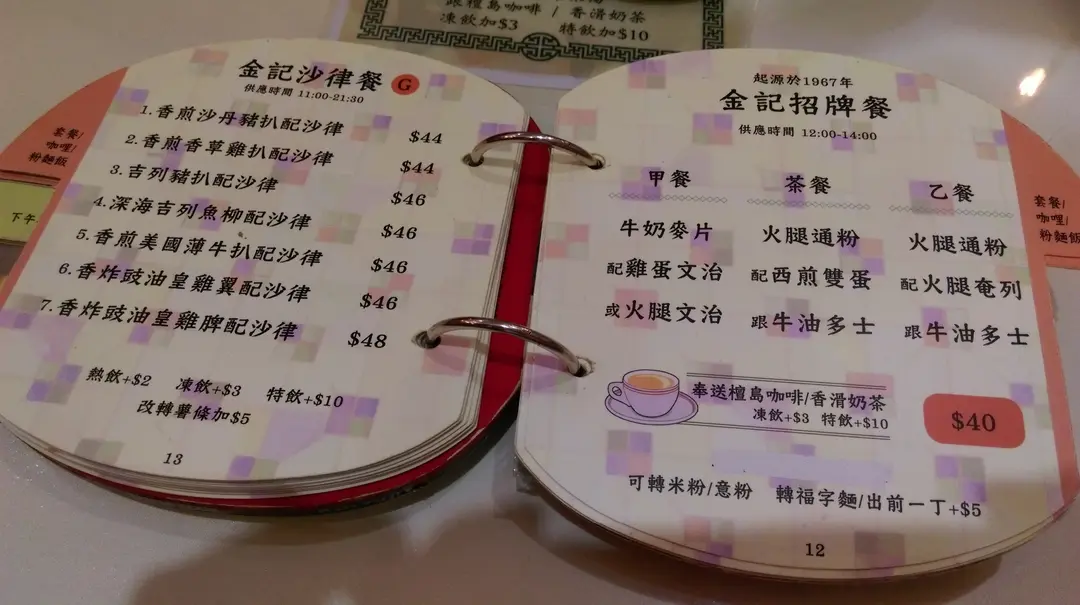 跟檀島咖啡 / 香滑奶茶
凍飲加$3 特飲加$10
套餐/
咖哩/
粉麵飯
下午
金記沙律餐 G
供應時間 11:00-21:30
1.香煎沙丹豬扒配沙律 $44
2.香煎香草雞扒配沙律 $44
3.吉列豬扒配沙律 $46
4.深海吉列魚柳配沙律 $46
5.香煎美國薄牛扒配沙律 $46
6.香炸豉油皇雞翼配沙律 $46
7.香炸豉油皇雞脾配沙律 $48
熱飲+$2 凍飲+$3 特飲+$10
改轉薯條加$5
13
起源於1967年
金記招牌餐
供應時間 12:00-14:00
甲餐 茶餐 乙餐
牛奶麥片 火腿通粉 火腿通粉
配雞蛋文治 配西煎雙蛋 配火腿奄列
或火腿文治 跟牛油多士 跟牛油多士
奉送檀島咖啡/香滑奶茶
凍飲+$3 特飲+$10
$40
可轉米粉/意粉 轉福字麵/出前一丁+$5
12
套餐/
咖哩/
粉麵飯